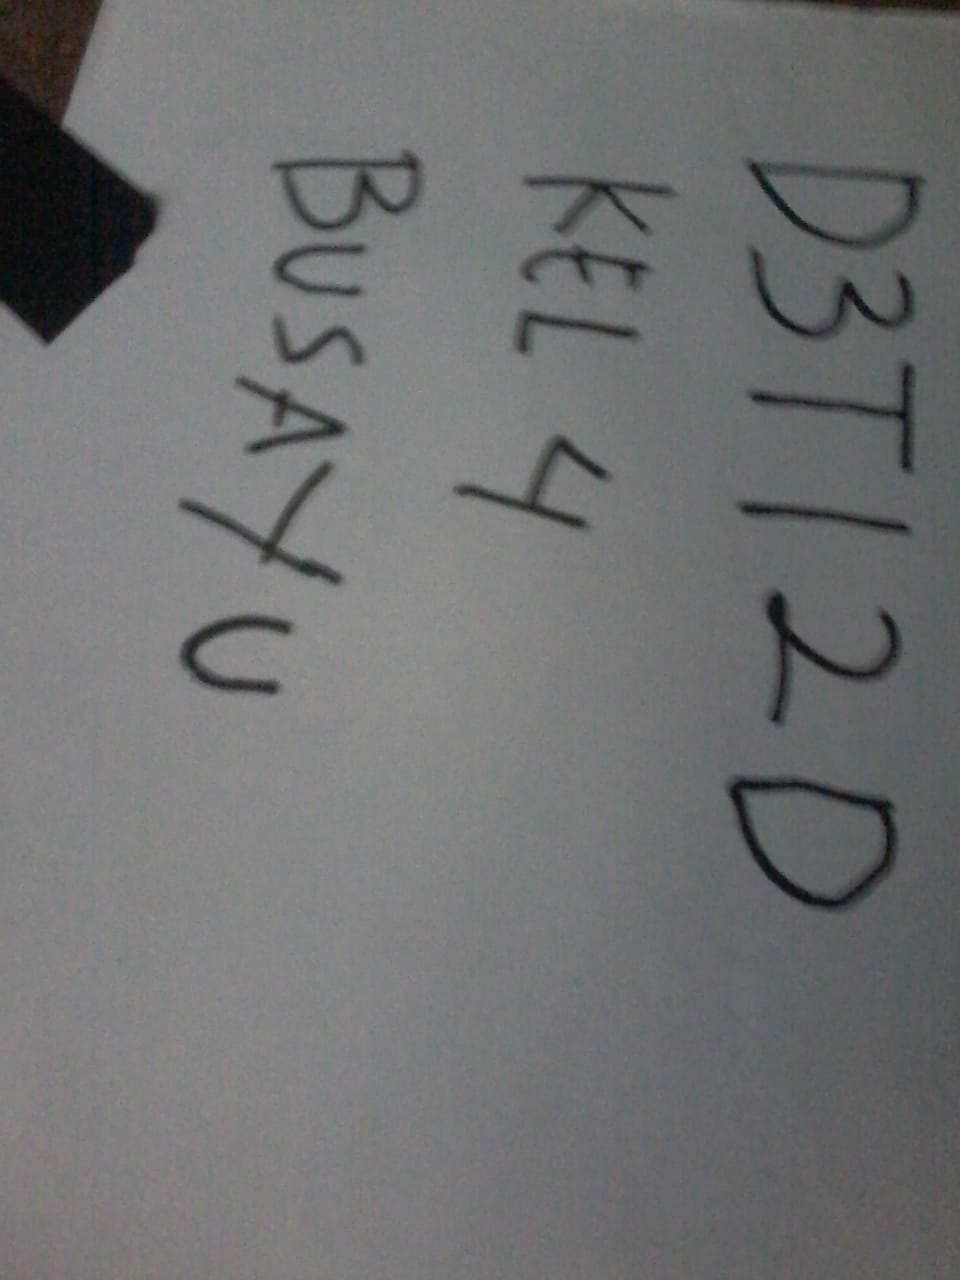 D3TI2D
KEL 4
BUSAYU